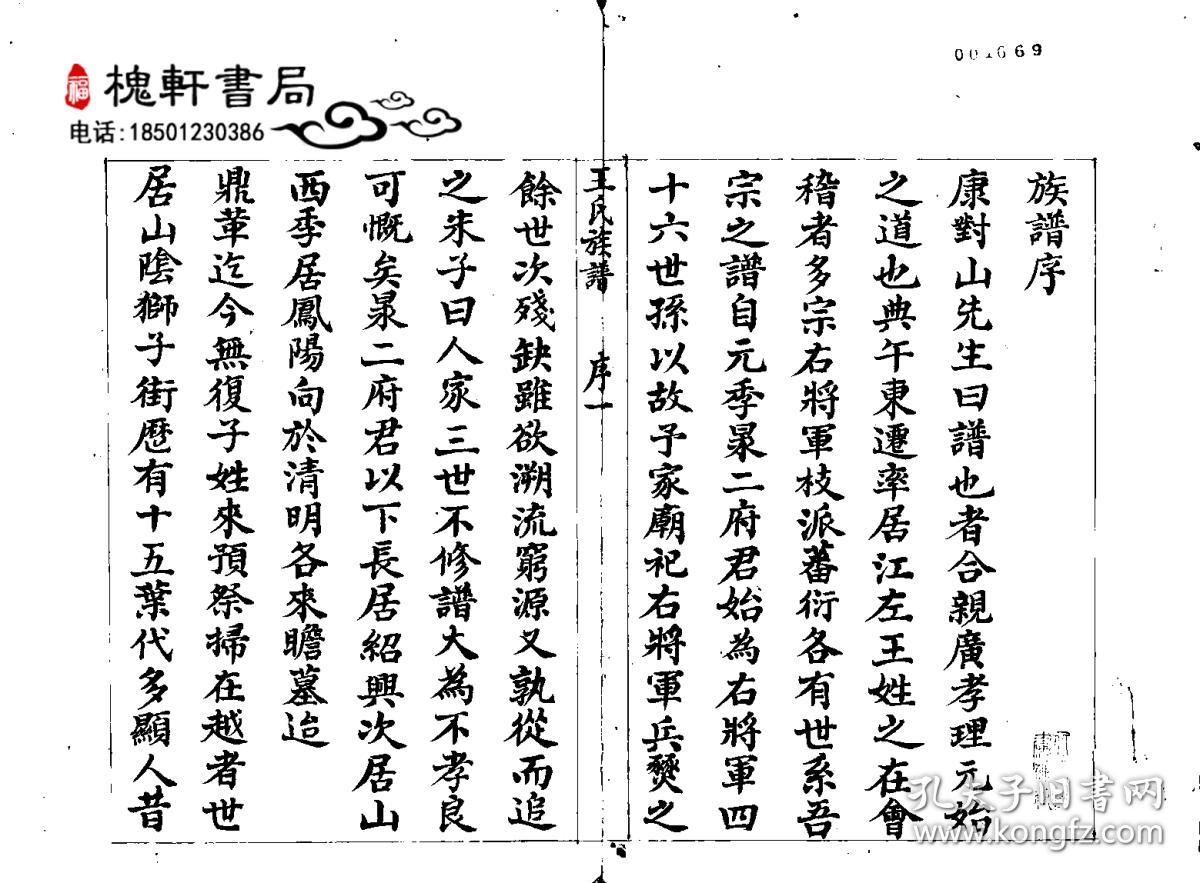 001669
福
槐軒書局
电话:18501230386
族譜序
康對山先生曰譜也者合親廣孝理元始
之道也典午東遷率居江左王姓之在會
稽者多宗右將軍枝派蕃衍各有世系吾
宗之譜自元季杲二府君始為右將軍四
十六世孫以故予家廟祀右將軍兵燹之
王氏族譜 序一
餘世次殘缺雖欲溯流窮源又孰從而追
之朱子曰人家三世不修譜大為不孝良
可慨矣杲二府君以下長居紹興次居山
西季居鳳陽向於清明各來瞻墓迨
鼎革迄今無復子姓來預祭掃在越者世
居山陰獅子街歷有十五葉代多顯人昔
孔夫子旧书网
www.kongfz.com